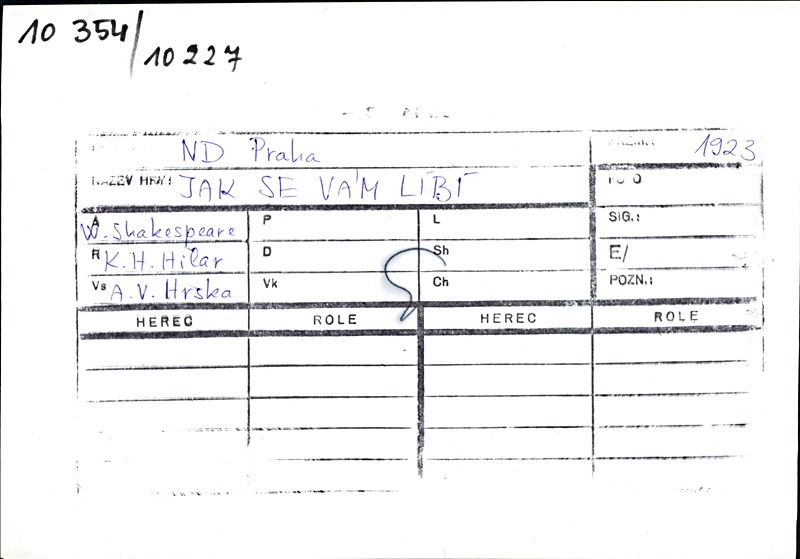 10 354/
10 227
ND Praha
1923
NÁZEV HRY: JAK SE VÁM LÍBÍ
FOTO
A W. Shakespeare P L SIG.:
R K. H. Hilar D Sh E/
Vs A. V. Hrska Vk Ch POZN.:
HEREC ROLE HEREC ROLE